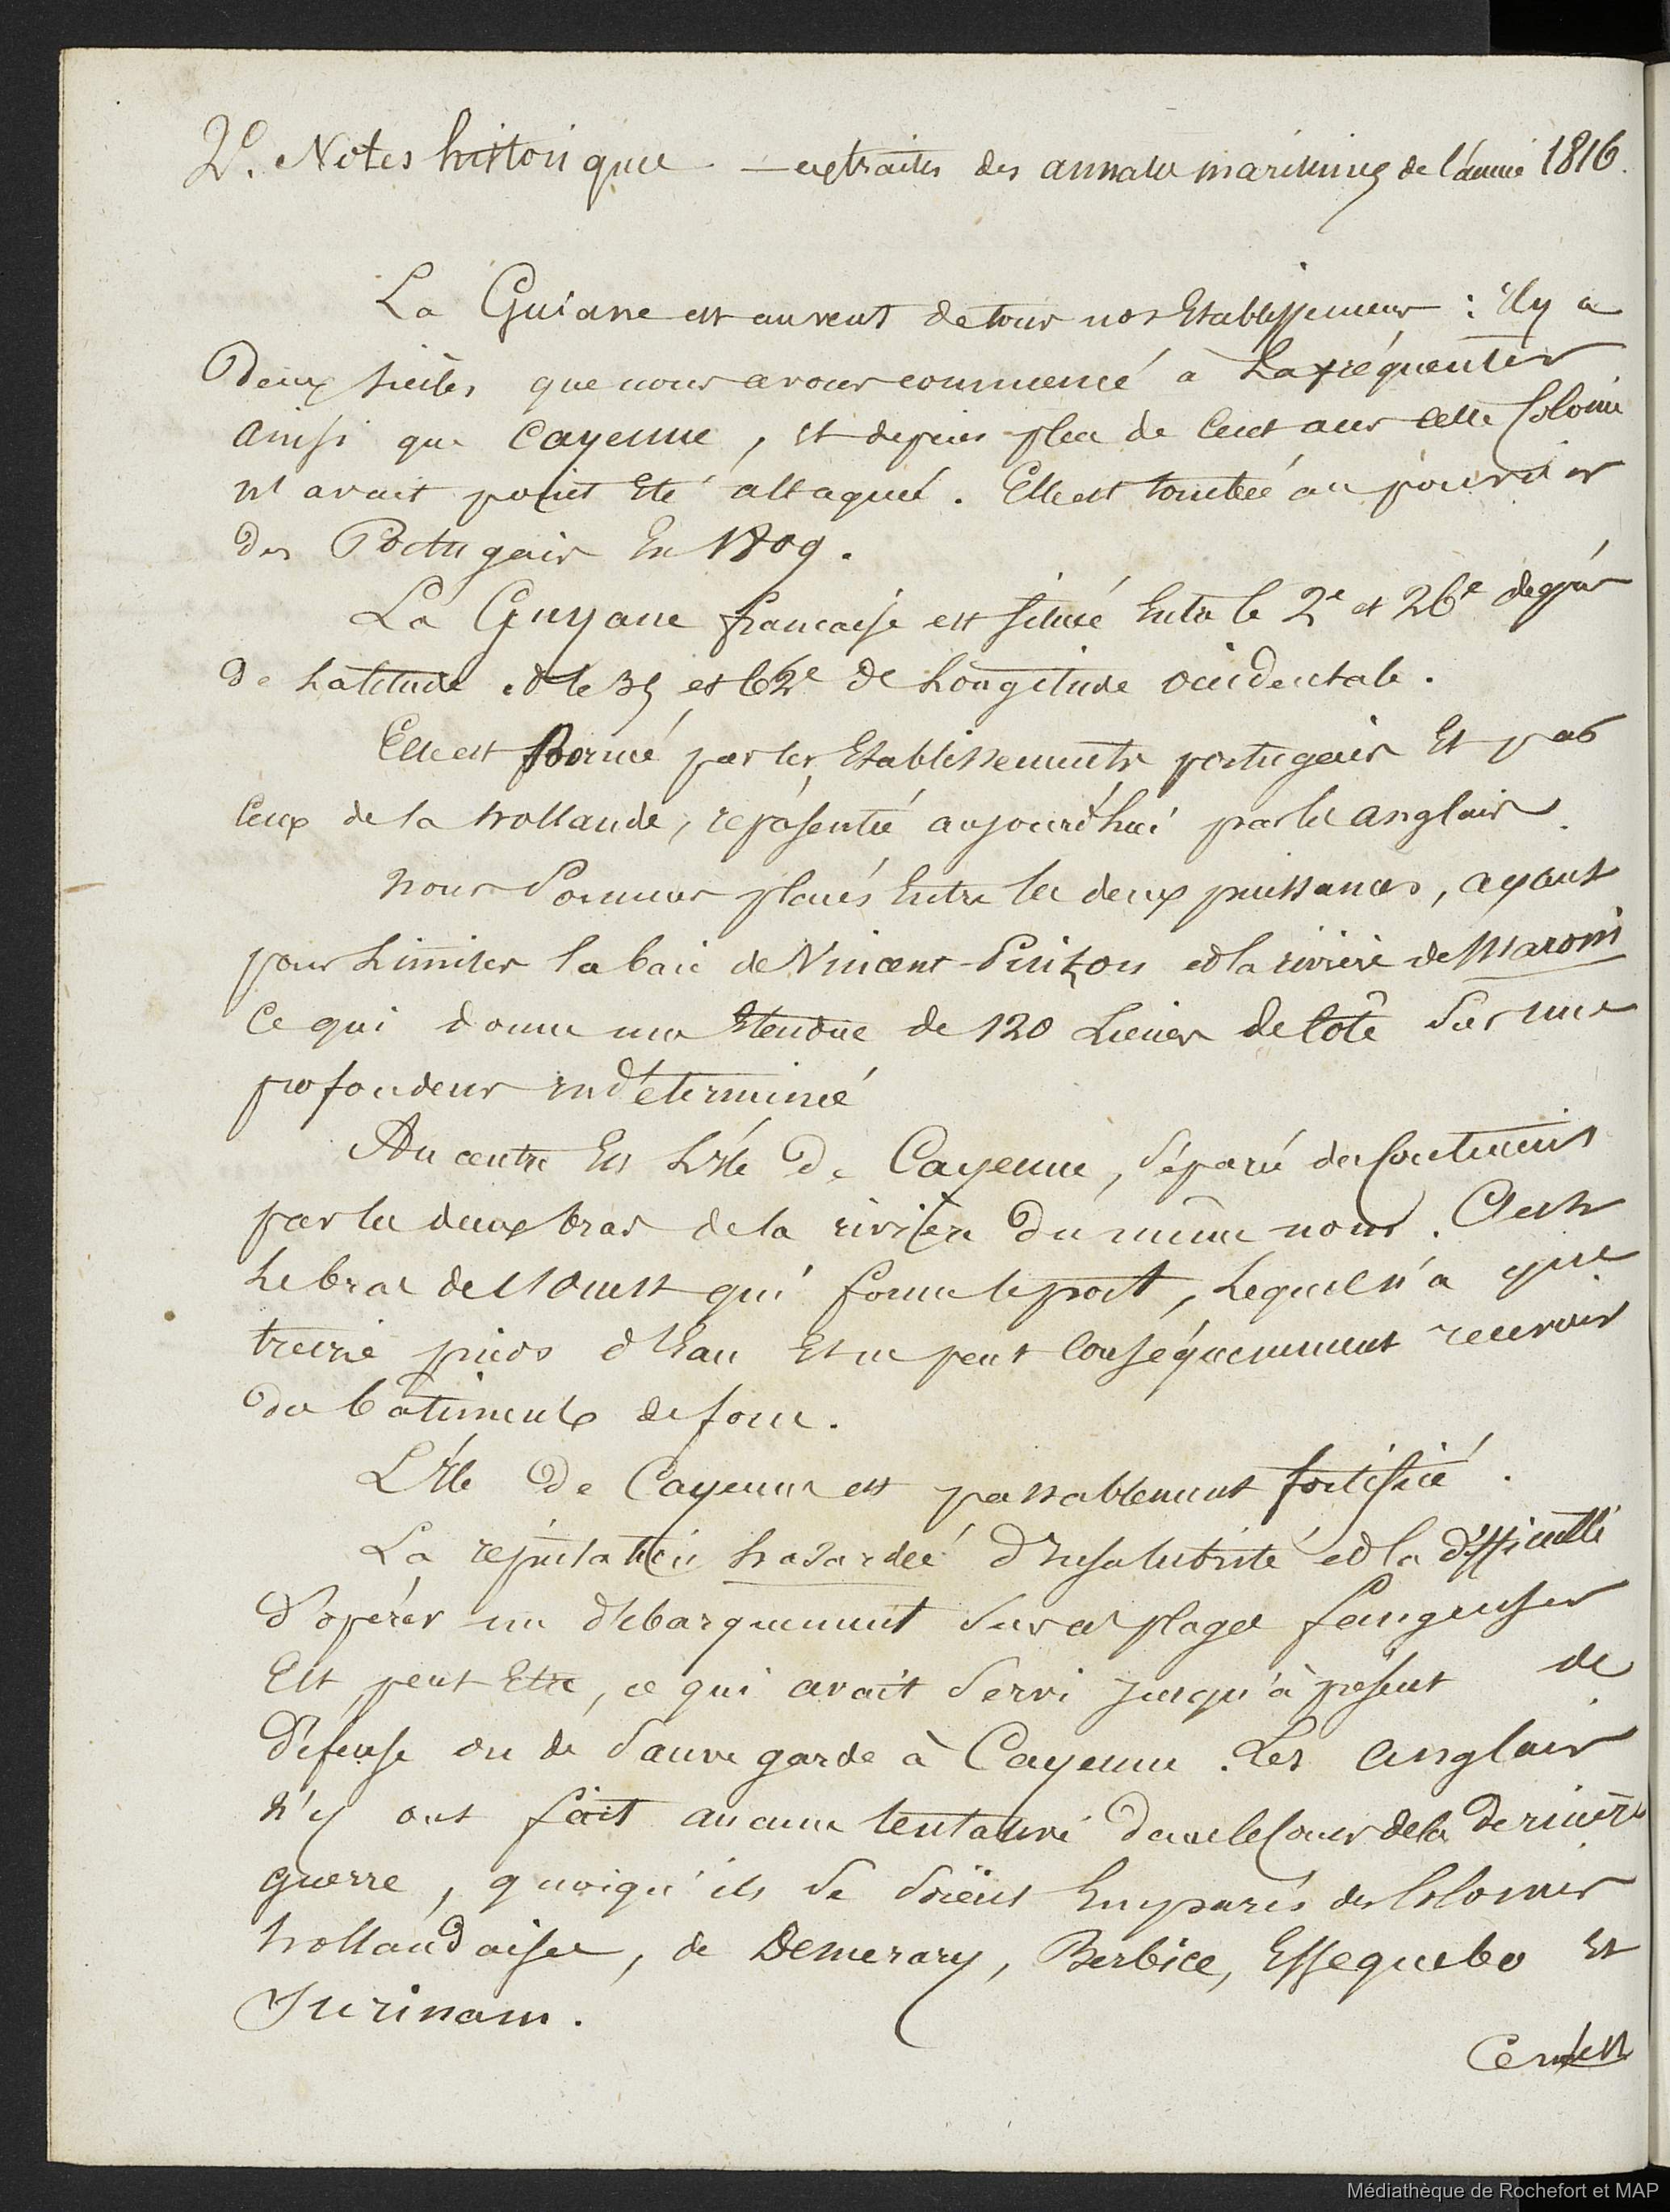 2º. Notes historique — extraites des annales maritimes de l'année 1816.
La Guiane est au vent de tous nos Etablissemens : il y a
Deux siècles que nous avons commencé à La fréquenter
ainsi que Cayenne, et depuis plus de Cent ans cette Colonie
n'avait point Eté attaqué. Elle est tombée au pouvoir
des Portugais En 1809.
La Guyane francaise est située Entre le 2e et 26e degrés
de Latitude et le 35 et 62e de Longitude occidentale.
Elle est Borné par les Etablissements portugais Et par
Ceux de la hollande, représenté aujourd'hui par les anglais.
Nous Sommes placés Entre les deux puissances, ayant
pour Limites la baie de Vincent-Pinzon et la rivière de Maroni
Ce qui donne une Etendue de 120 Lieues de Côte Sur une
profondeur indéterminée
Au centre Est L'Ile De Cayenne, Séparé du Continent
par les deux bras de la rivière Du même nom. C'est
Le bras de l'Ouest qui forme le port, Lequel n'a que
treize pieds d'Eau Et ne peut Conséquemment recevoir
des bâtiments de force.
L'Ile De Cayenne est passablement fortifiée.
La réputation hasardée d'Insalubrité et la difficulté
d'opérer un débarquement Sur ces plages fangeuses
Est peut Etre, ce qui avait Servi jusqu'à présent de
défense ou de Sauve garde à Cayenne. Les anglais
n'y ont fait aucune tentative Dans le Cours de la Dernière
guerre, quoiqu'ils Se Soient Emparés des Colonies
hollandaises, de Demerary, Berbice, Essequebo Et
Surinam.
Ce n'est
Médiathèque de Rochefort et MAP